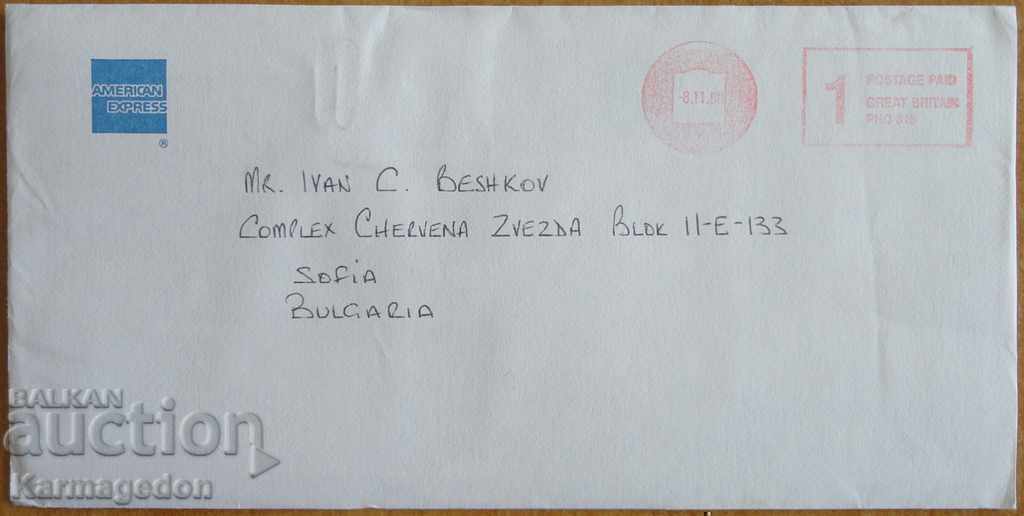 AMERICAN
EXPRESS
®
1
POSTAGE PAID
GREAT BRITAIN
MR. IVAN C. BESHKOV
COMPLEX CHERVENA ZVEZDA BLOK 11-E-133
SOFIA
BULGARIA
BALKAN
auction
Karmagedon